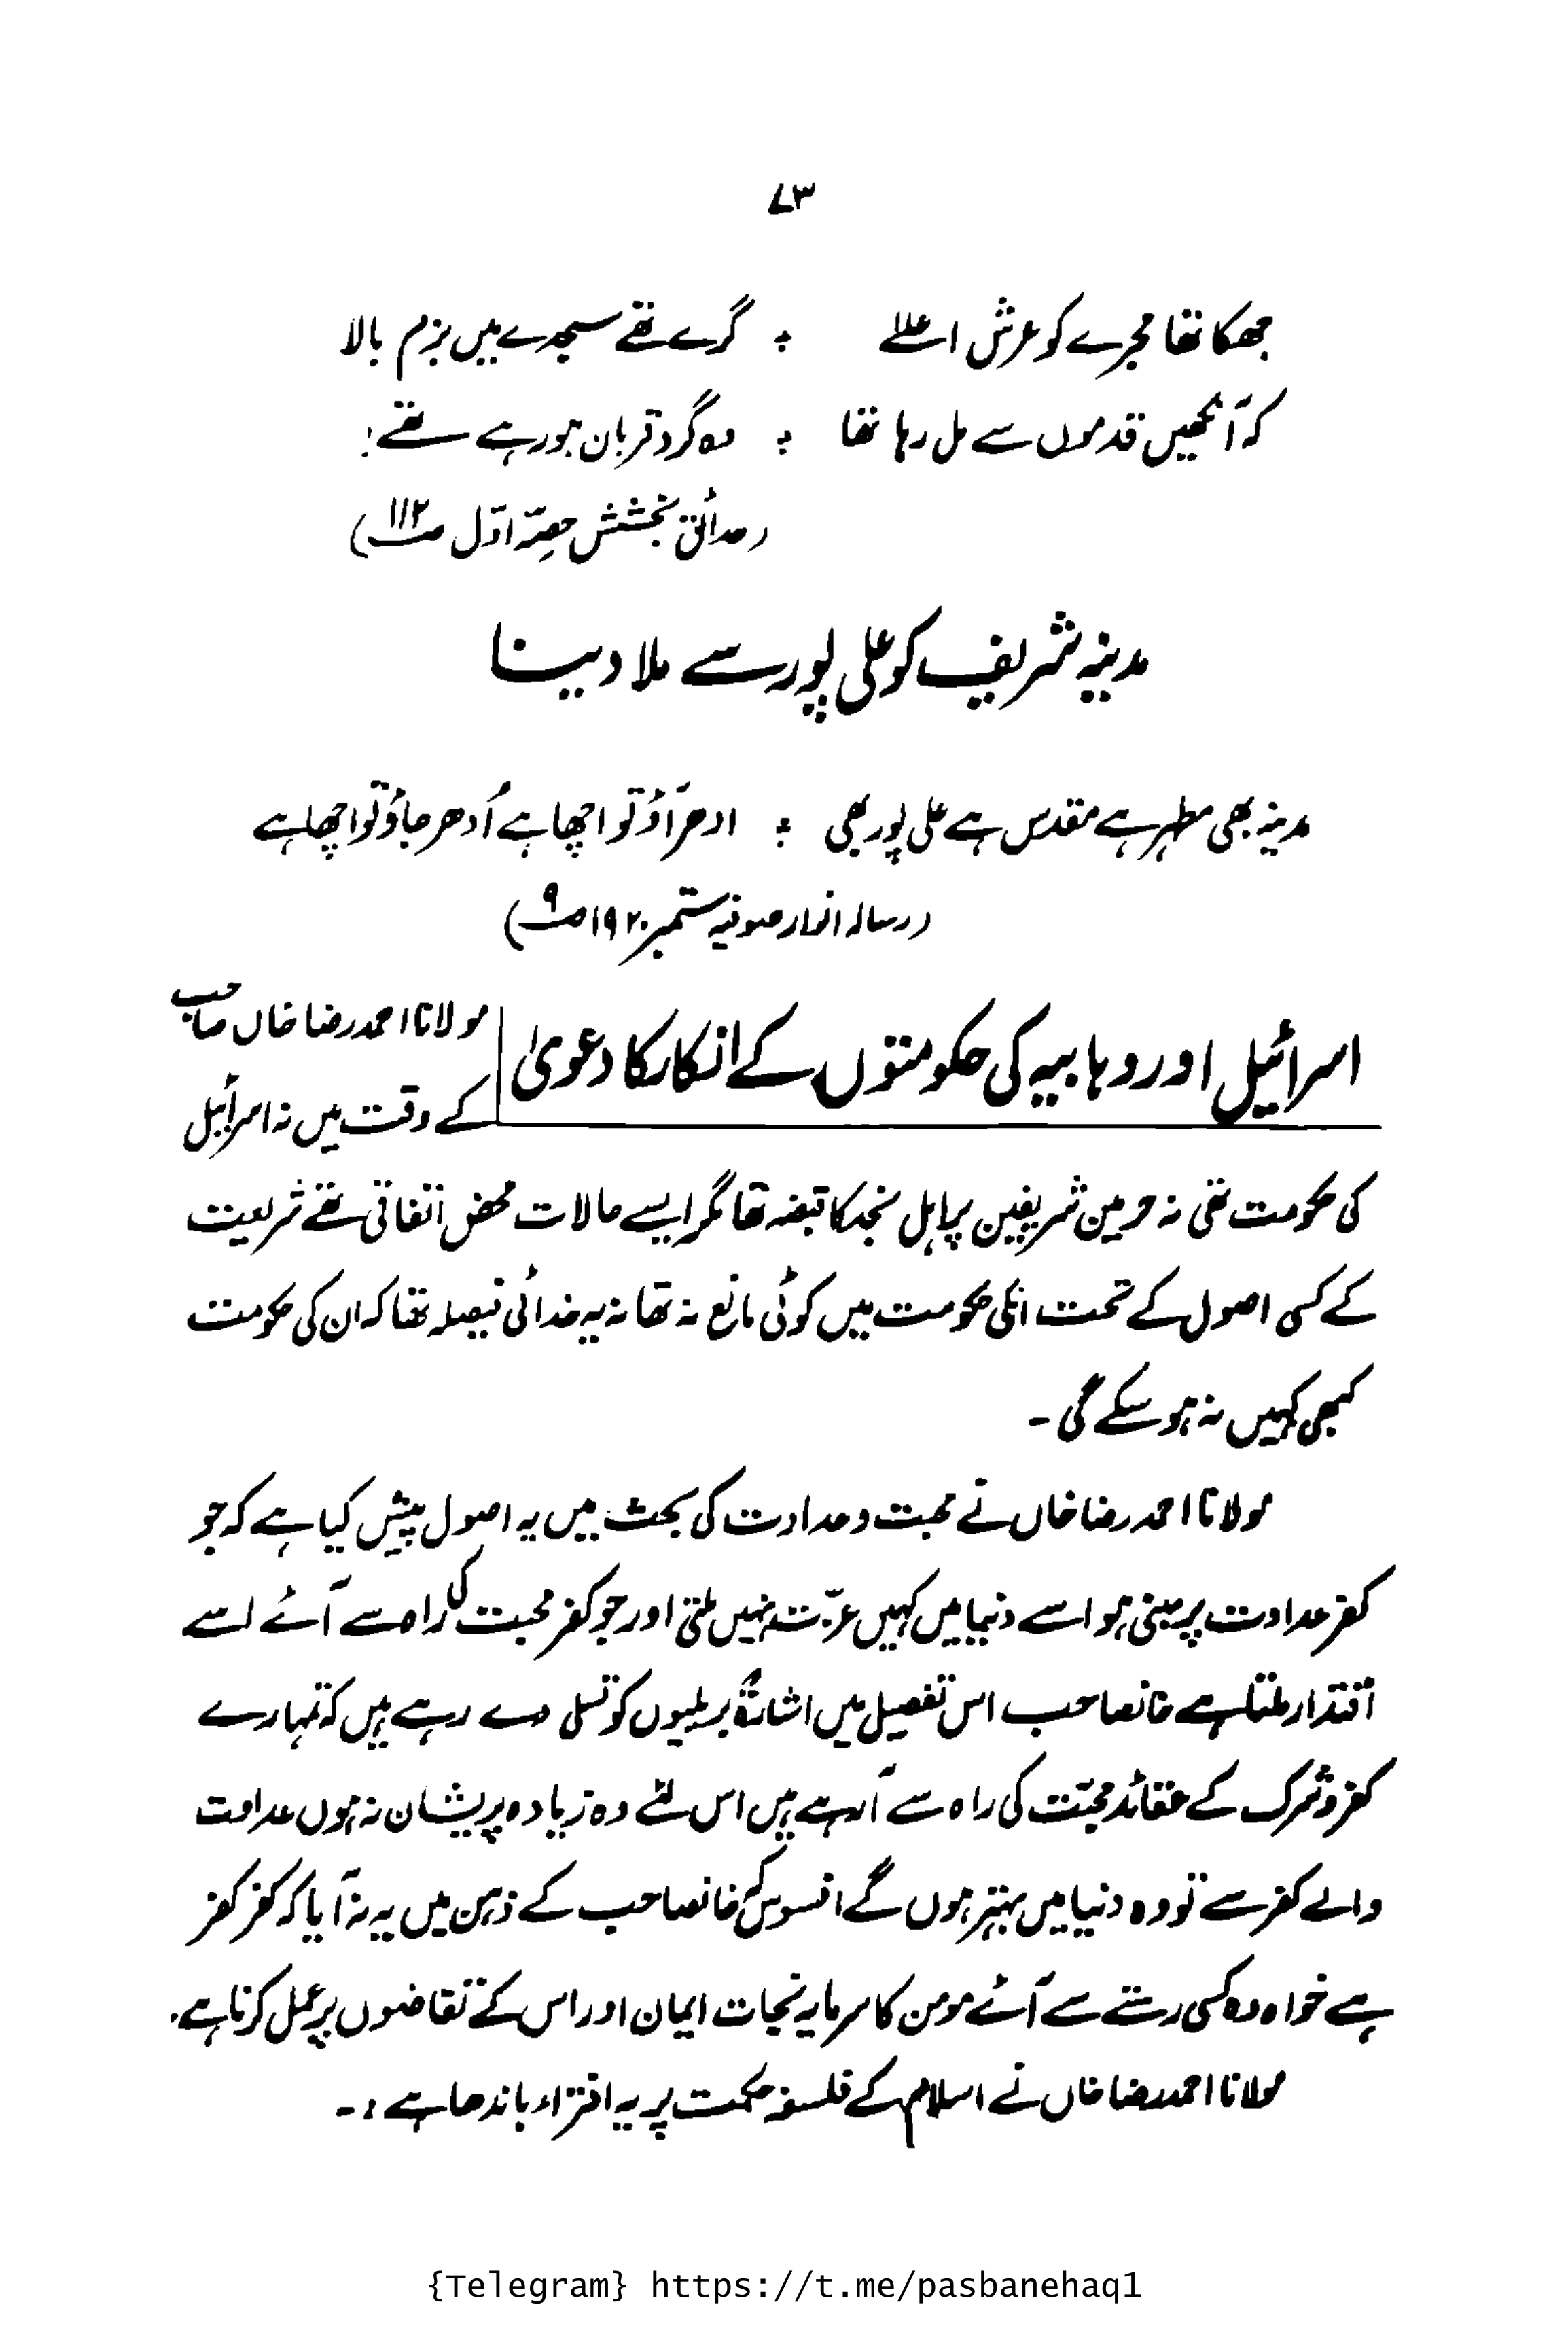 ۷۳
جھکا تھا مجرے کو عرش اعلےٰ ؞ گرے تھے سجدے میں بزم بالا
کہ آنکھیں قدموں سے مل رہا تھا ؞ وہ گرد قربان ہو رہے تھے:
(حدائق بخشش حصّہ اوّل ص۱۱۲)
مدینہ شریف کو علی پور سے ملا دینا
مدینہ بھی مطہر ہے مقدس ہے علی پور بھی ؞ ادھر آؤ تو اچھا ہے اُدھر جاؤ تو اچھا ہے
(رسالہ انوار صوفیہ ستمبر ۱۹۲۰ ص۹)
اسرائیل اور وہابیہ کی حکومتوں کے انکار کا دعویٰ
مولانا احمد رضا خاں صاحب
کے وقت میں نہ اسرائیل
کی حکومت تھی نہ حرمین شریفین پر اہل نجد کا قبضہ تھا مگر ایسے حالات محض اتفاقی تھے شریعت
کے کسی اصول کے تحت انکی حکومت میں کوئی مانع نہ تھا نہ یہ خدائی فیصلہ تھا کہ ان کی حکومت
کبھی کہیں نہ ہو سکے گی ـ
مولانا احمد رضا خاں نے محبت و عداوت کی بحث میں یہ اصول پیش کیا ہے کہ جو
کفر عداوت پر مبنی ہو اسے دنیا میں کہیں عزّت نہیں ملتی اور جو کفر محبت کی راہ سے آئے اسے
اقتدار ملتا ہے خانصاحب اس تفصیل میں اشارۃً بریلیوں کو تسلی دے رہے ہیں کہ تمہارے
کفر و شرک کے عقائد محبّت کی راہ سے آرہے ہیں اس لئے وہ زیادہ پریشان نہ ہوں عداوت
والے کفر سے تو وہ دنیا میں بہتر ہوں گے افسوس کہ خانصاحب کے ذہن میں یہ نہ آیا کہ کفر کفر
ہے خواہ وہ کسی رستے سے آئے مومن کا سرمایہ نجات ایمان اور اس کے تقاضوں پر عمل کرنا ہے.
مولانا احمد رضا خاں نے اسلام کے فلسفہ حکمت پر یہ افتراء باندھا ہے :ـ
{Telegram} https://t.me/pasbanehaq1